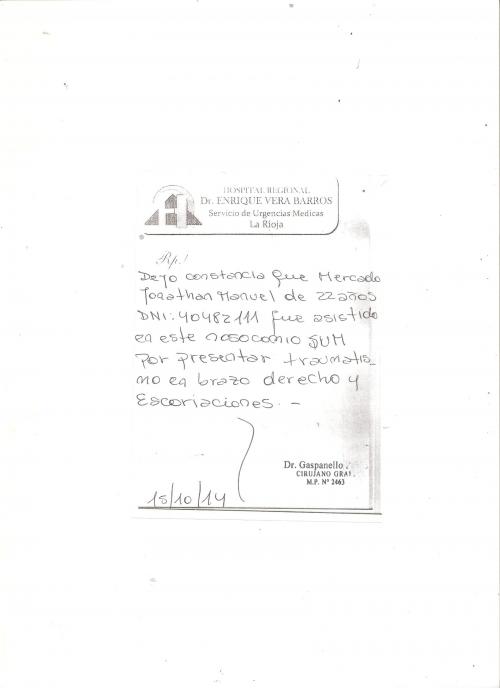 HOSPITAL REGIONAL
Dr. ENRIQUE VERA BARROS
Servicio de Urgencias Medicas
La Rioja
Rp./
Dejo constancia que Mercado
Jonathan Manuel de 22 años
DNI: 40482111 fue asistido
en este nosocomio SUM
Por presentar traumatis_
mo en brazo derecho y
Escoriaciones. -
Dr. Gaspanello
CIRUJANO GRAL.
M.P. Nº 2463
15/10/14